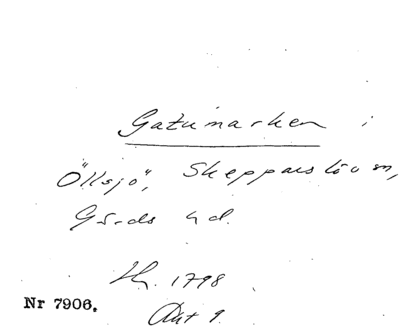 Gatumarken i
Öllsjö, Skepparslöv sn,
Gärds hd.
1798
Nr 7906.
Akt 9.